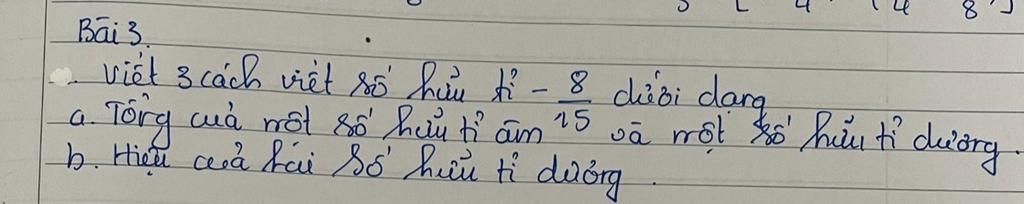 Bài 3.
. Viết 3 cách viết số hữu tỉ - 8/15 dưới dạng
a. Tổng của một số hữu tỉ âm và một số hữu tỉ dương.
b. Hiệu của hai số hữu tỉ dương.